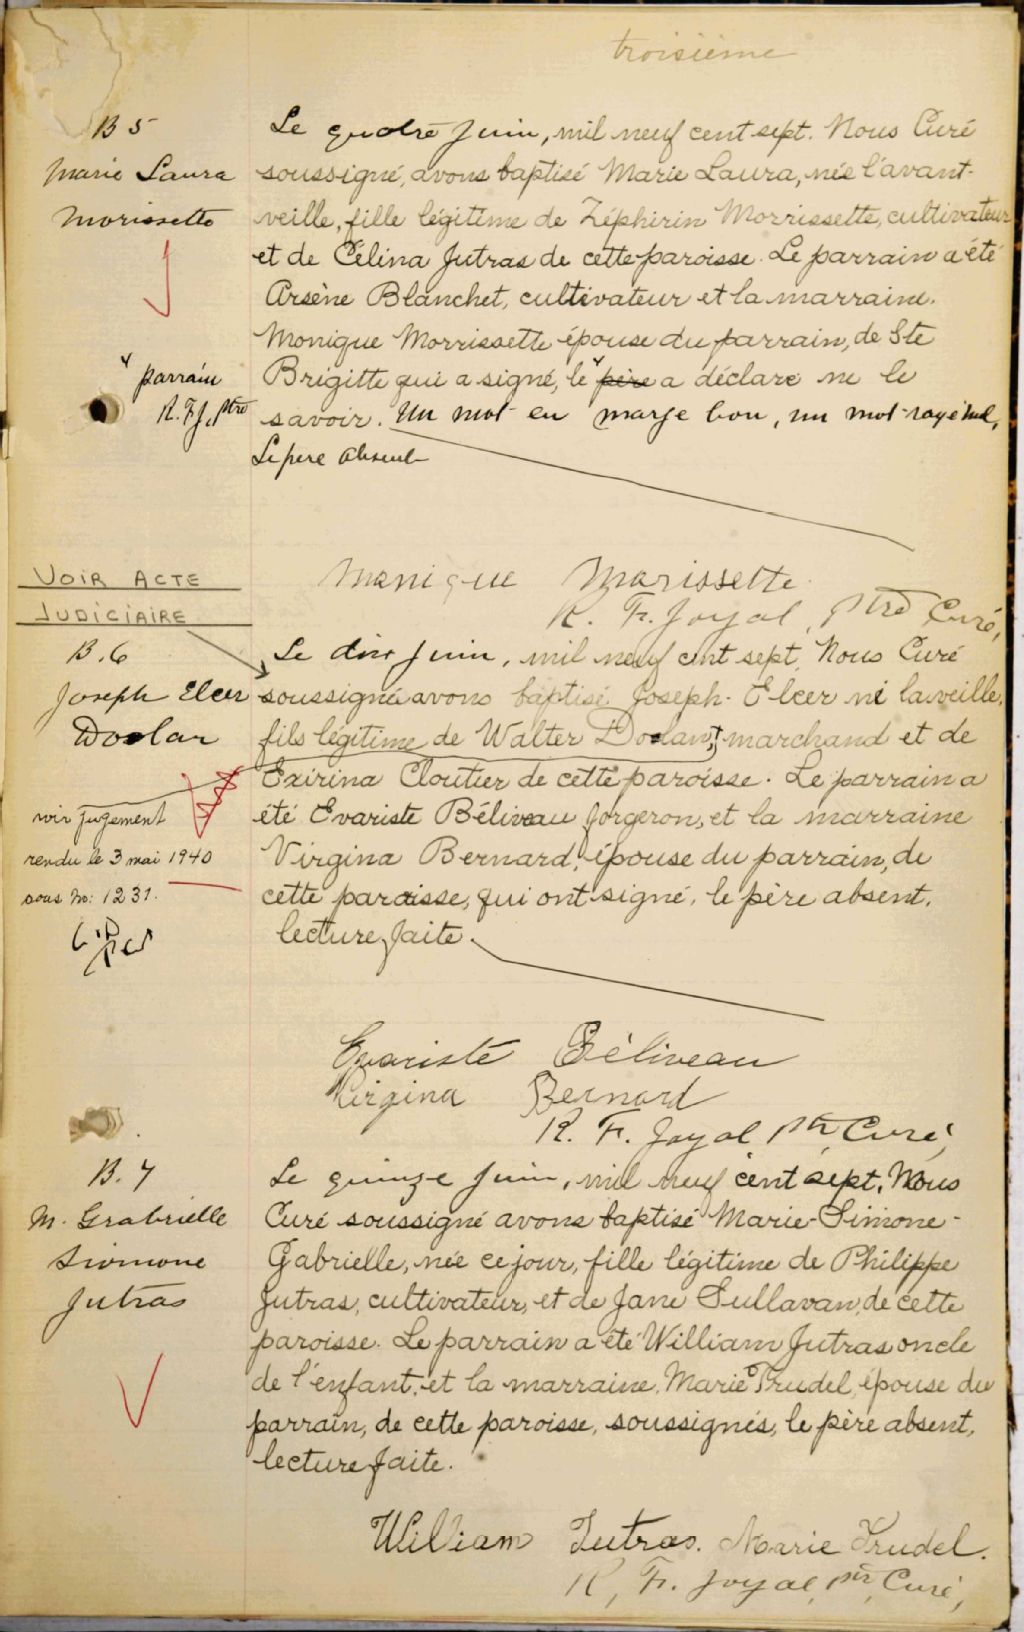 troisième
B 5
Marie Laura
Morissette
Le quatre Juin, mil neuf cent sept. Nous Curé
soussigné, avons baptisé Marie Laura, née l'avant-
veille, fille légitime de Zéphirin Morrissette, cultivateur
et de Célina Jutras de cette paroisse. Le parrain a été
Arsène Blanchet, cultivateur et la marraine.
Monique Morrissette épouse du parrain, de Ste
Brigitte qui a signé, le " père a déclare ne le
" parrain
R. F. J. Ptre
savoir. Un mot en marge bon, un mot rayé nul,
Le père absent
Monique Marissette
R. F. Joyal, Ptre Curé,
VOIR ACTE
JUDICIAIRE
B. 6
Joseph Elcer
Doolan
Le dix Juin, mil neuf cent sept, Nous Curé
soussigné avons baptisé Joseph-Elcer né la veille,
fils légitime de Walter Doolan, marchand et de
Exirina Cloutier de cette paroisse. Le parrain a
été Evariste Béliveau forgeron, et la marraine
Virgina Bernard, épouse du parrain, de
cette paroisse, qui ont signé, le père absent,
lecture faite.
voir jugement
rendu le 3 mai 1940
sous No: 1231.
Evariste Béliveau
Virgina Bernard
R. F. Joyal Ptr, Curé,
B. 7
M. Grabrielle
Siomone
Jutras
Le quinze Juin, mil neuf cent sept, Nous
Curé soussigné avons baptisé Marie-Simone-
Gabrielle, née ce jour, fille légitime de Philippe
Jutras, cultivateur, et de Jane Sullavan, de cette
paroisse. Le parrain a été William Jutras oncle
de l'enfant, et la marraine, Marie Trudel, épouse du
parrain, de cette paroisse, soussignés, le père absent,
lecture faite.
William Jutras. Marie Trudel.
R. F. Joyal, ptr, Curé,